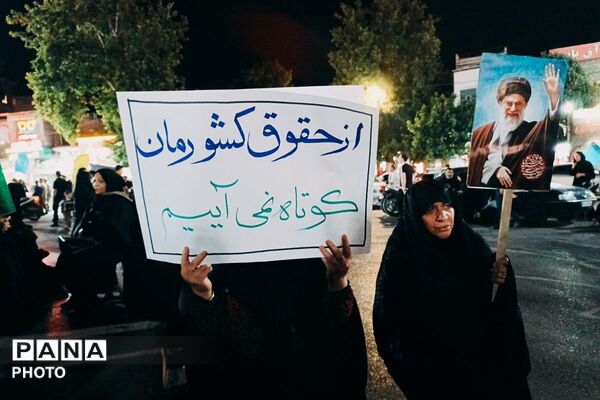 از حقوق کشورمان
کوتاه نمی آییم
PANA
PHOTO